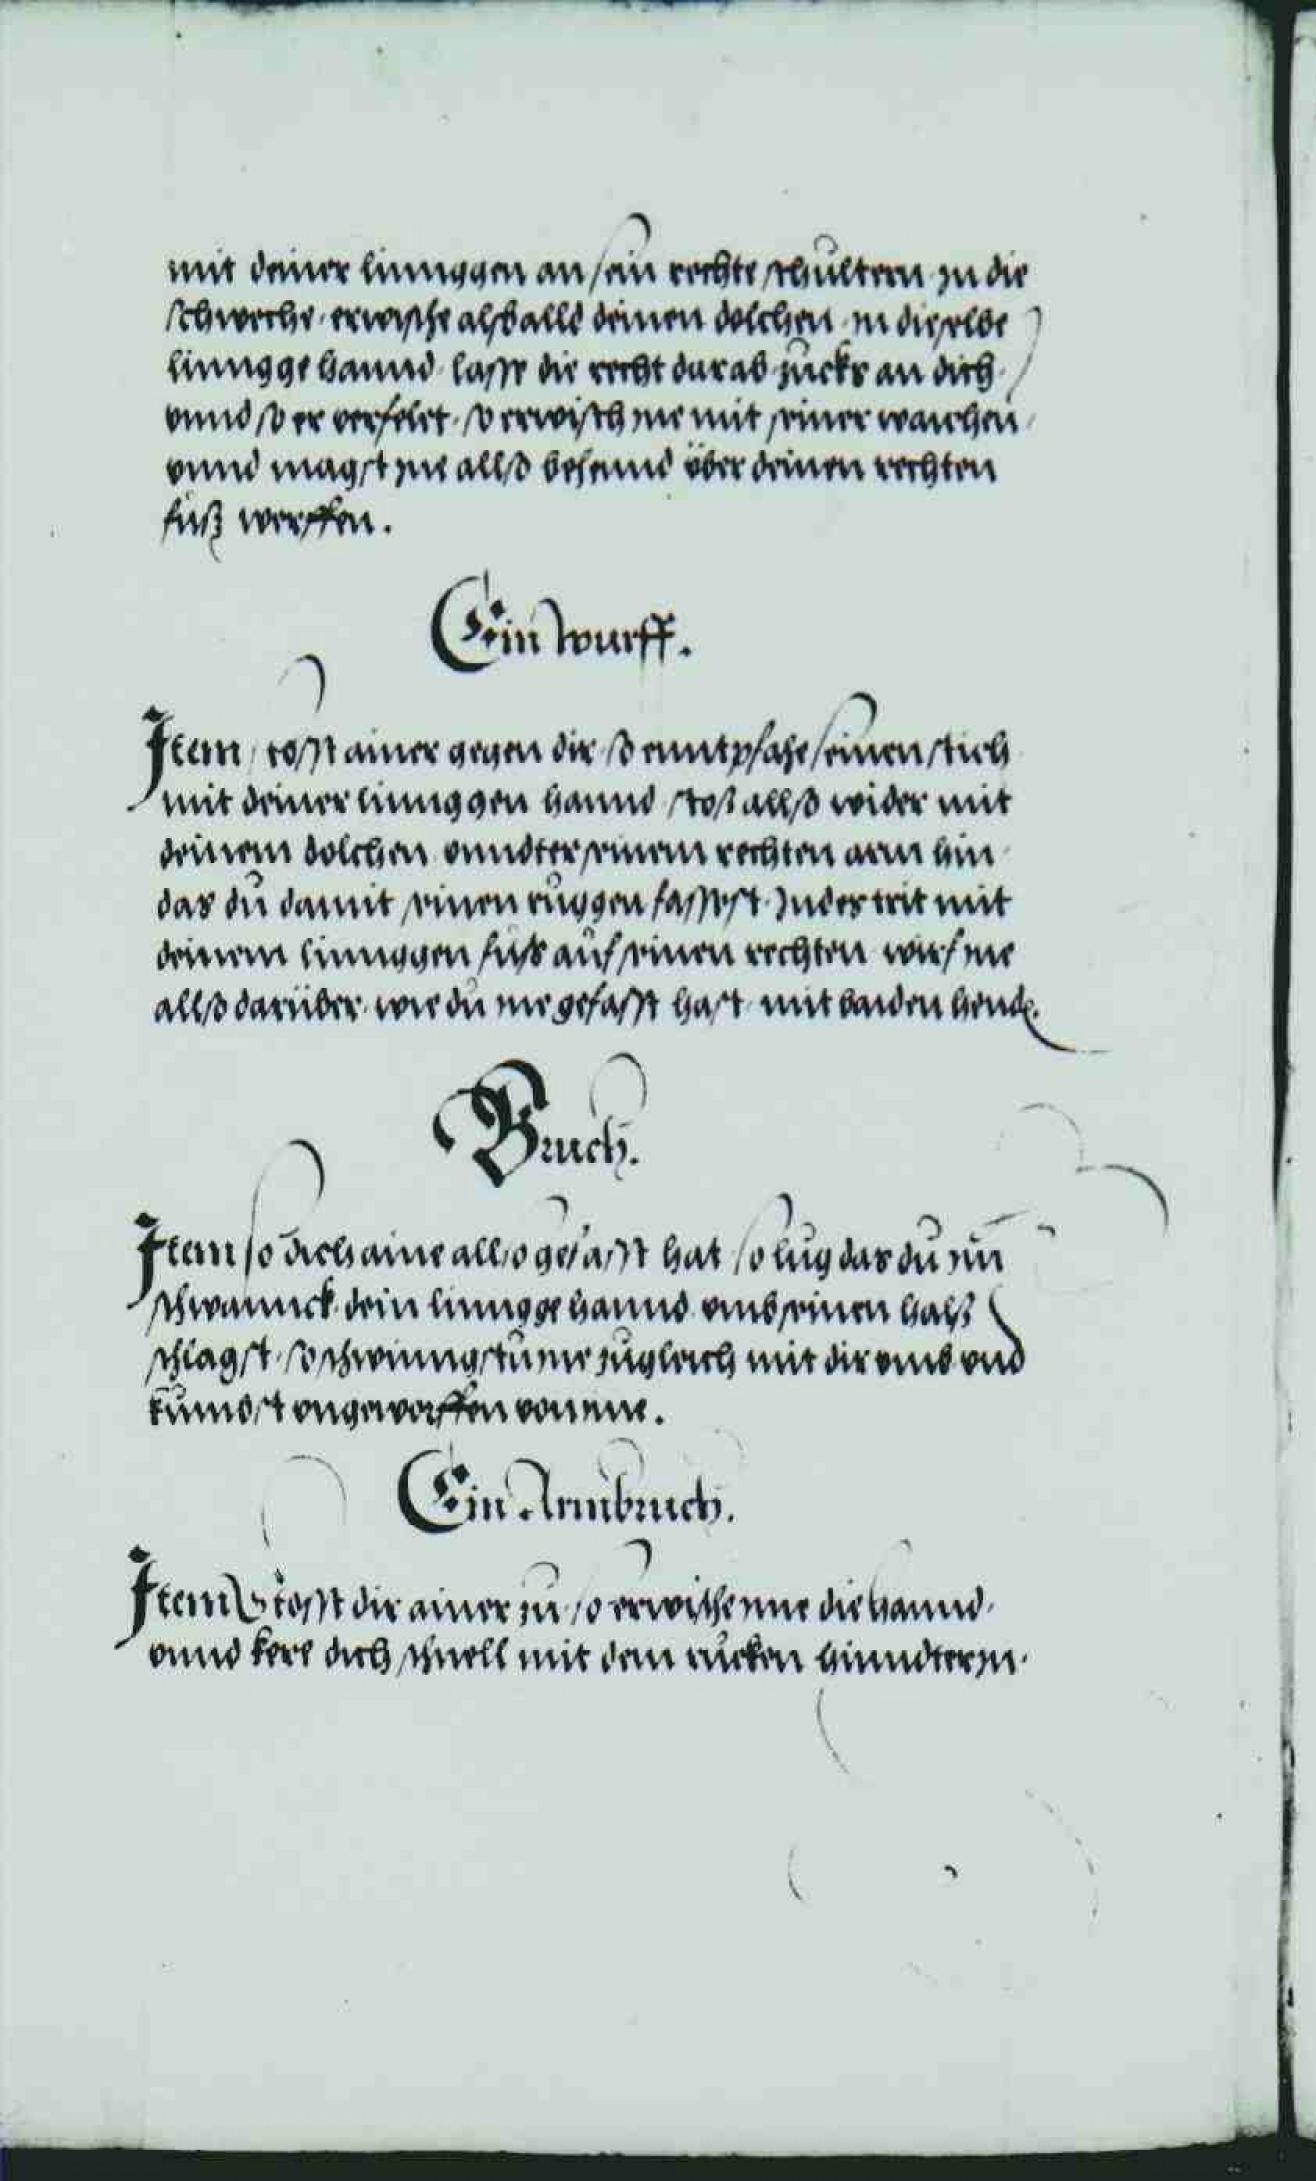 mit deiner linnggen an sein rechte schultern in die
schweche, erwische alsballd deinen dolchen in dieselbe
linngge hannd, lasse die recht darab zucks an dich,
vnnd so er verfelet, so erwisch ine mit seiner waichen,
vnnd magst ine allso behennd über deinen rechten
fůß werffen.
Ein wurff.
Item stosst ainer gegen dir so enntpfahe seinen stich
mit deiner linnggen hannd, stoß allso wider mit
deinem dolchen vnndter seinem rechten arm hin
das dů damit seinen růggen fassest, Indes trit mit
deinem linnggen fůß auf seinen rechten wirf ine
allso darüber, wie dů ine gefasst hast, mit baiden hend.
Bruch.
Item so dich aine allso gefasst hat so lůg das dů im
schwannck dein linngge hannd vmb seinen halß
schlagst, so schwinngstů ine zugleich mit dir vmb vnd
kůmbst vngeworffen von ime.
Ein Armbruch.
Item Stosst dir ainer zů, so erwische ime die hannd,
vnnd kere dich schnell mit dem rucken hinndterin.